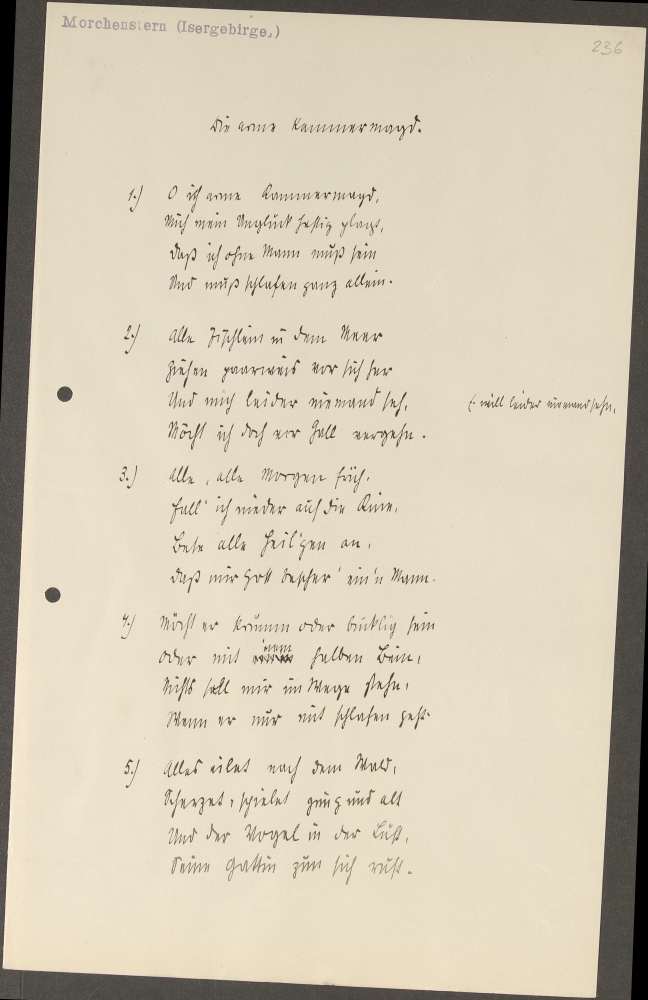 Morchenstern (Isergebirge,)
236
Die arme Kammermagd.
1.) O ich arme Kammermagd,
Mich mein Unglück heftig plagt,
Daß ich ohne Mann muß sein
Und muß schlafen ganz allein.
2.) Alle Fischlein in dem Meer
Ziehen paarweis vor sich her
Und mich leider niemand seh,
(: will leider niemand sehn,
Möcht ich doch vor Gall vergehn.
3.) Alle, alle Morgen früh,
Fall' ich nieder auf die Knie,
Bete alle Heil'gen an,
Daß mir Gott bescher' ein'n Mann.
4.) Möcht er krumm oder bucklig sein
oder mit einem halben Bein,
Nichts soll mir im Wege stehn,
Wenn er nur mit schlafen geht.
5.) Alles eilet nach dem Wald,
Scherzet, spielet jung und alt
Und der Vogel in der Luft,
Seine Gattin zum sich ruft.